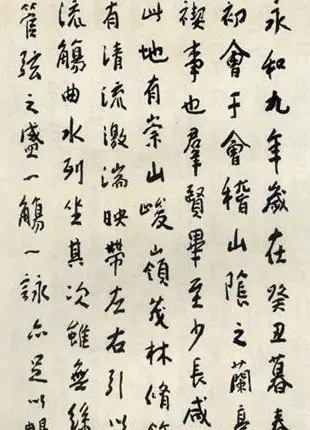 永和九年歲在癸丑暮春
初會于會稽山陰之蘭亭
禊事也羣賢畢至少長咸
此地有崇山峻嶺茂林脩竹
有清流激湍映帶左右引以
流觴曲水列坐其次雖無絲
管弦之盛一觴一詠亦足以暢